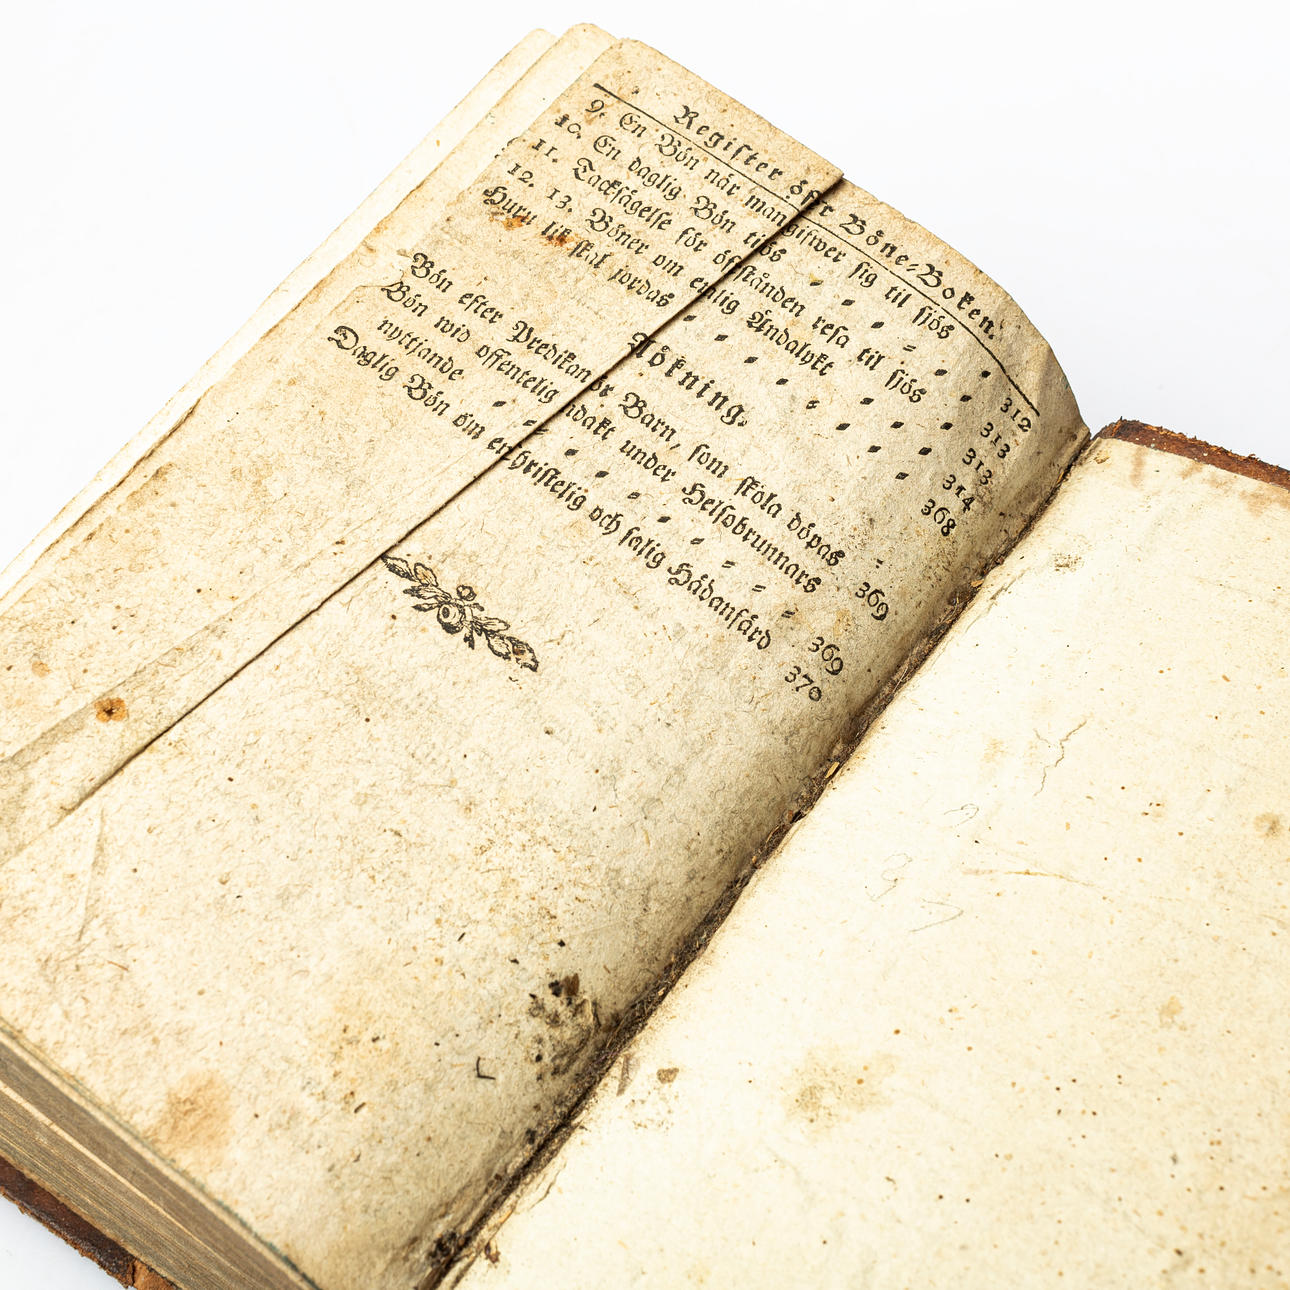 Register öfr Böne-Boken.
9. En Bön när man gifwer sig til sjös - - 312
10. En daglig Bön til sjös - - - - 313
11. Tacksägelse för öfstånden resa til sjös - 313
12. 13. Böner om enlig Andalykt - - - 314
Huru lik skal jordas - - - - - 368
Nökning.
Bön efter Predikan ör Barn, som skola döpas - 369
Bön wid offentelig ndakt under Helsobrunnars
nyttjande - - - - - - - - 369
Daglig Bön om en christelig och salig Hädanfärd 370